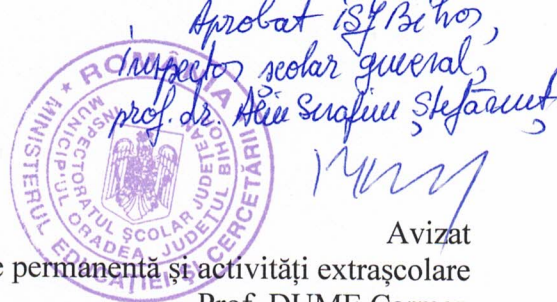 Aprobat ISJ Bihor,
Inspector școlar general,
prof. dr. Alin Serafim Ștefănuț
ROMÂNIA
MINISTERUL EDUCAȚIEI ȘI CERCETĂRII
INSPECTORATUL ȘCOLAR JUDEȚEAN
MUNICIPIUL ORADEA JUDEȚUL BIHOR
Avizat
permanentă și activități extrașcolare
Prof. DUME